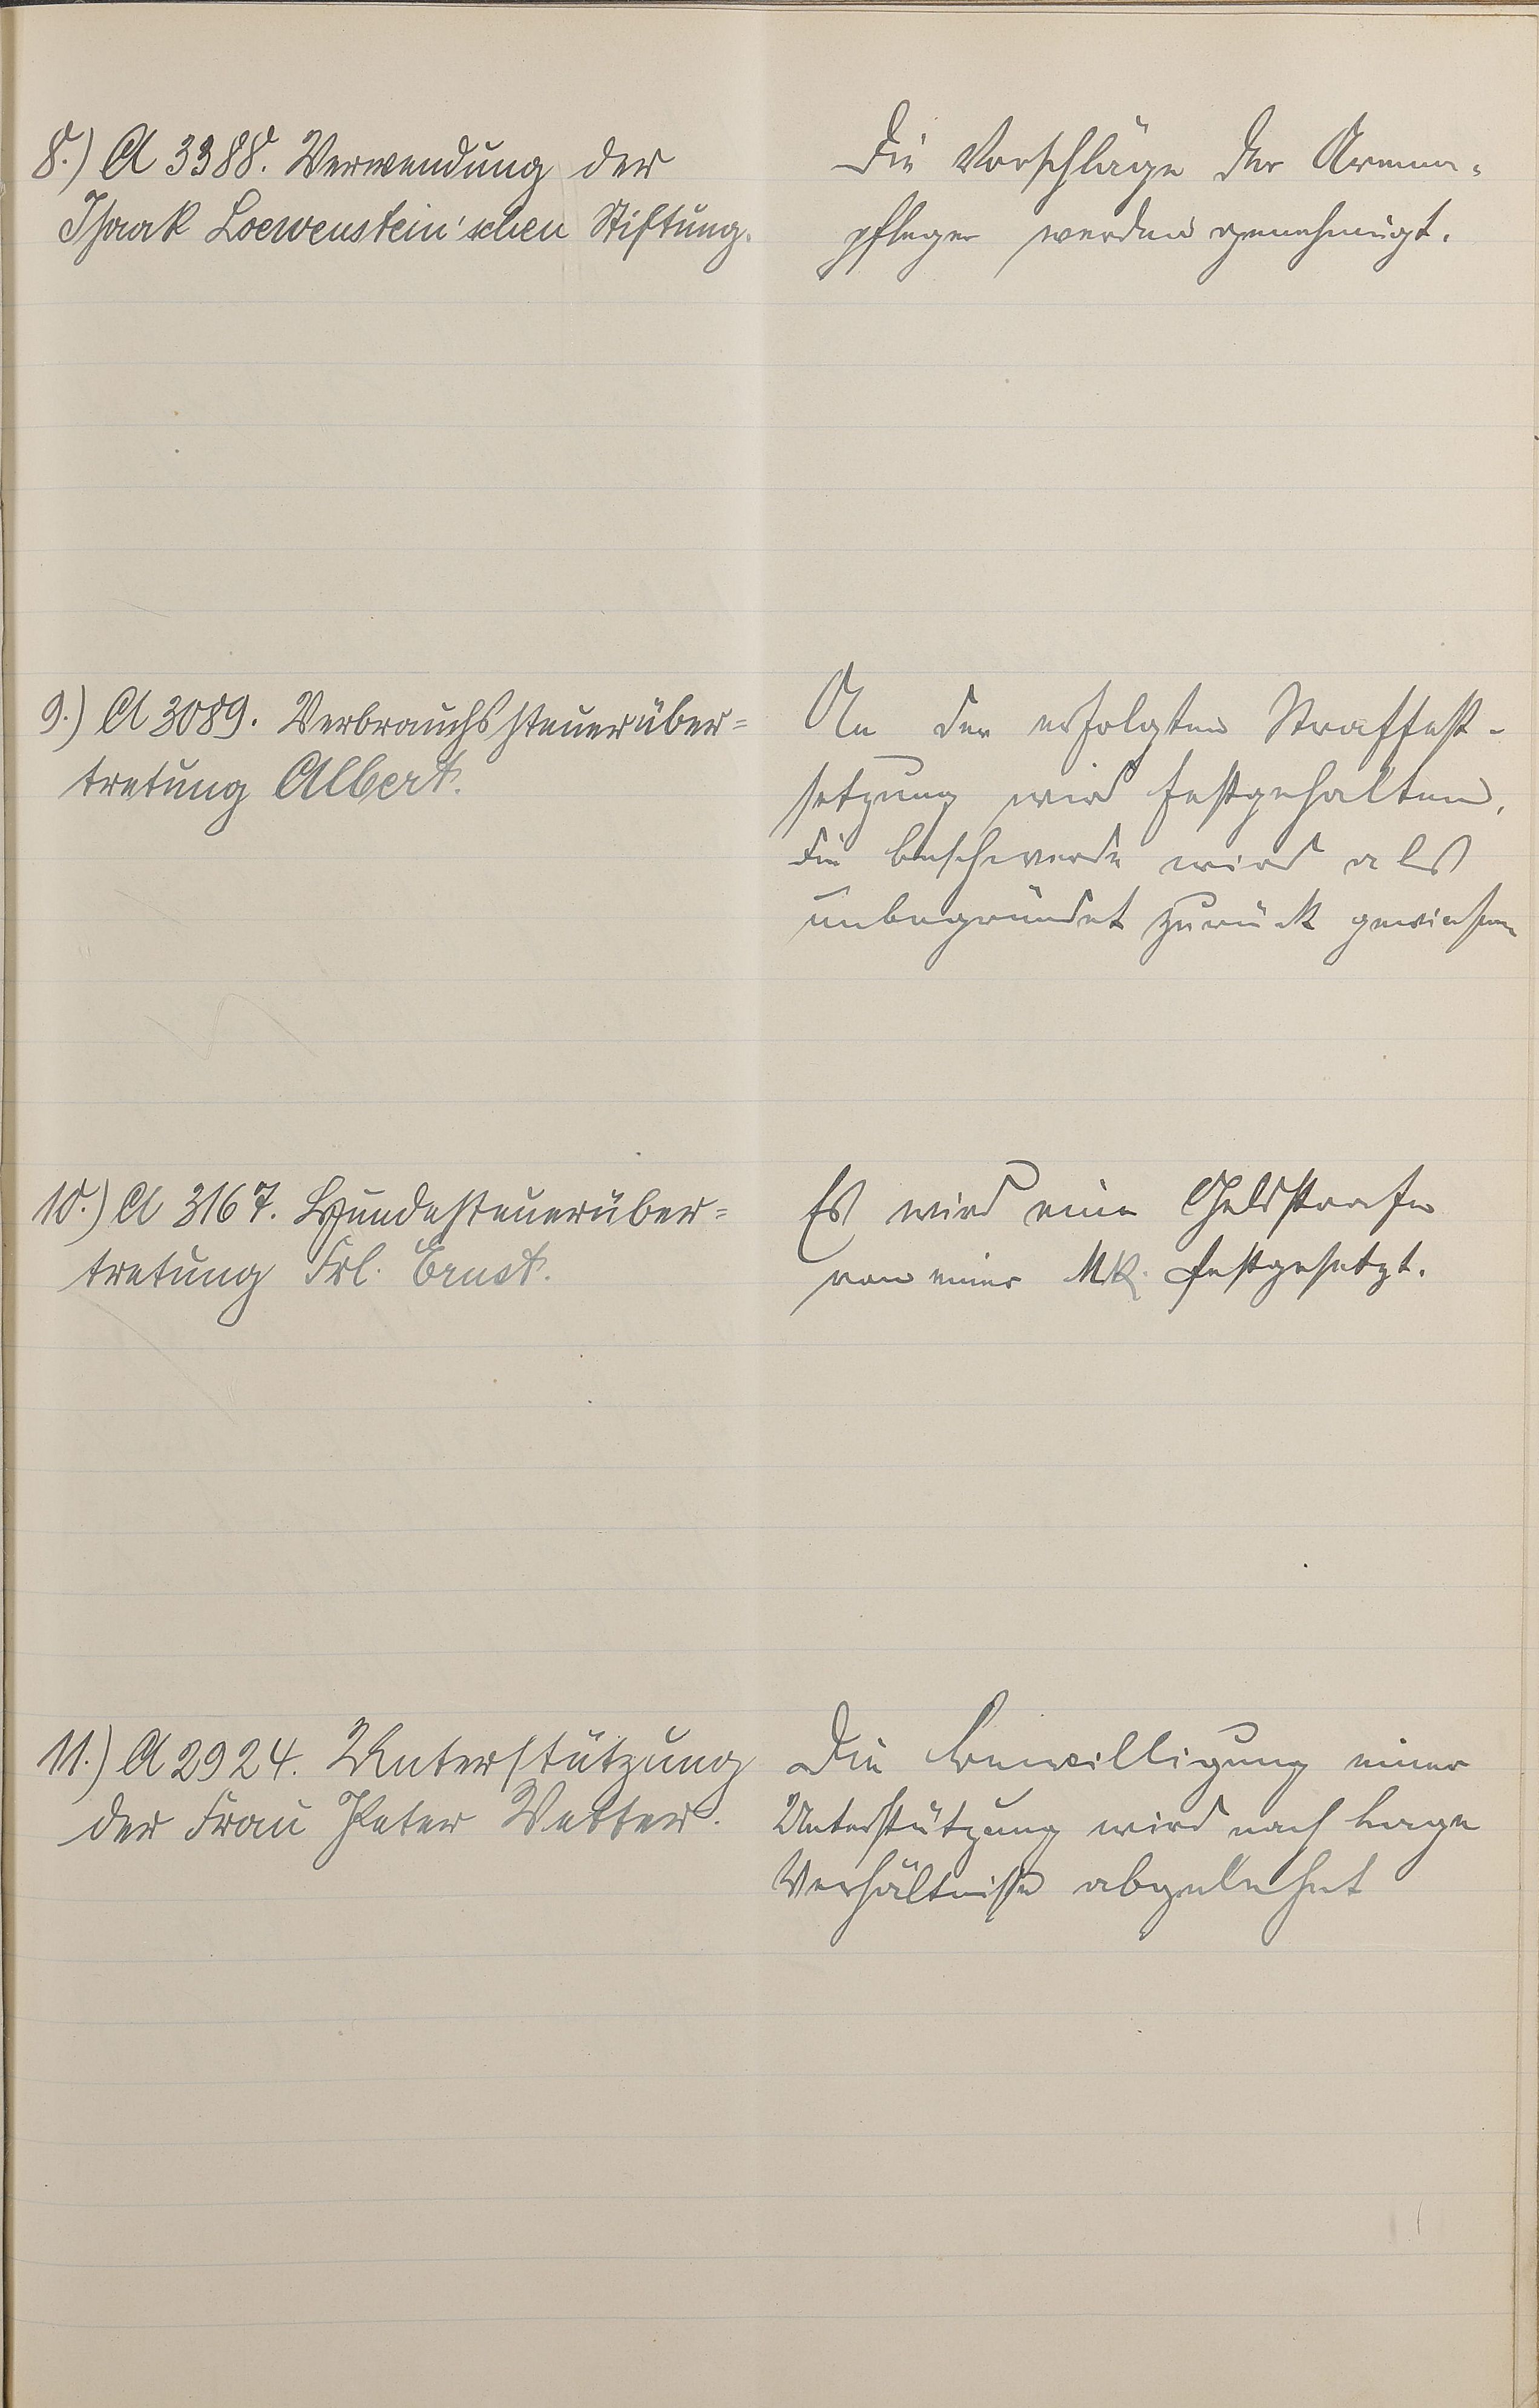 8.) A 3388. Verwendung der
Isaak Loewenstein'schen Stiftung.
Die Vorschläge der Armen-
pfleger werden genehmigt.
9.) A 3089. Verbrauchssteuerüber=
tretung Albert.
An der erfolgten Straffest-
setzung wird festgehalten,
die Beschwerde wird als
unbegründet zurück gewiesen
10.) A 3167. Hundesteuerüber=
tretung Frl. Ernst.
Es wird eine Geldstrafe
von einer Mk. festgesetzt.
11.) A 2924. Unterstützung
der Frau Peter Vetter.
Die Bewilligung einer
Unterstützung wird nach Lage
Verhältnisse abgelehnt